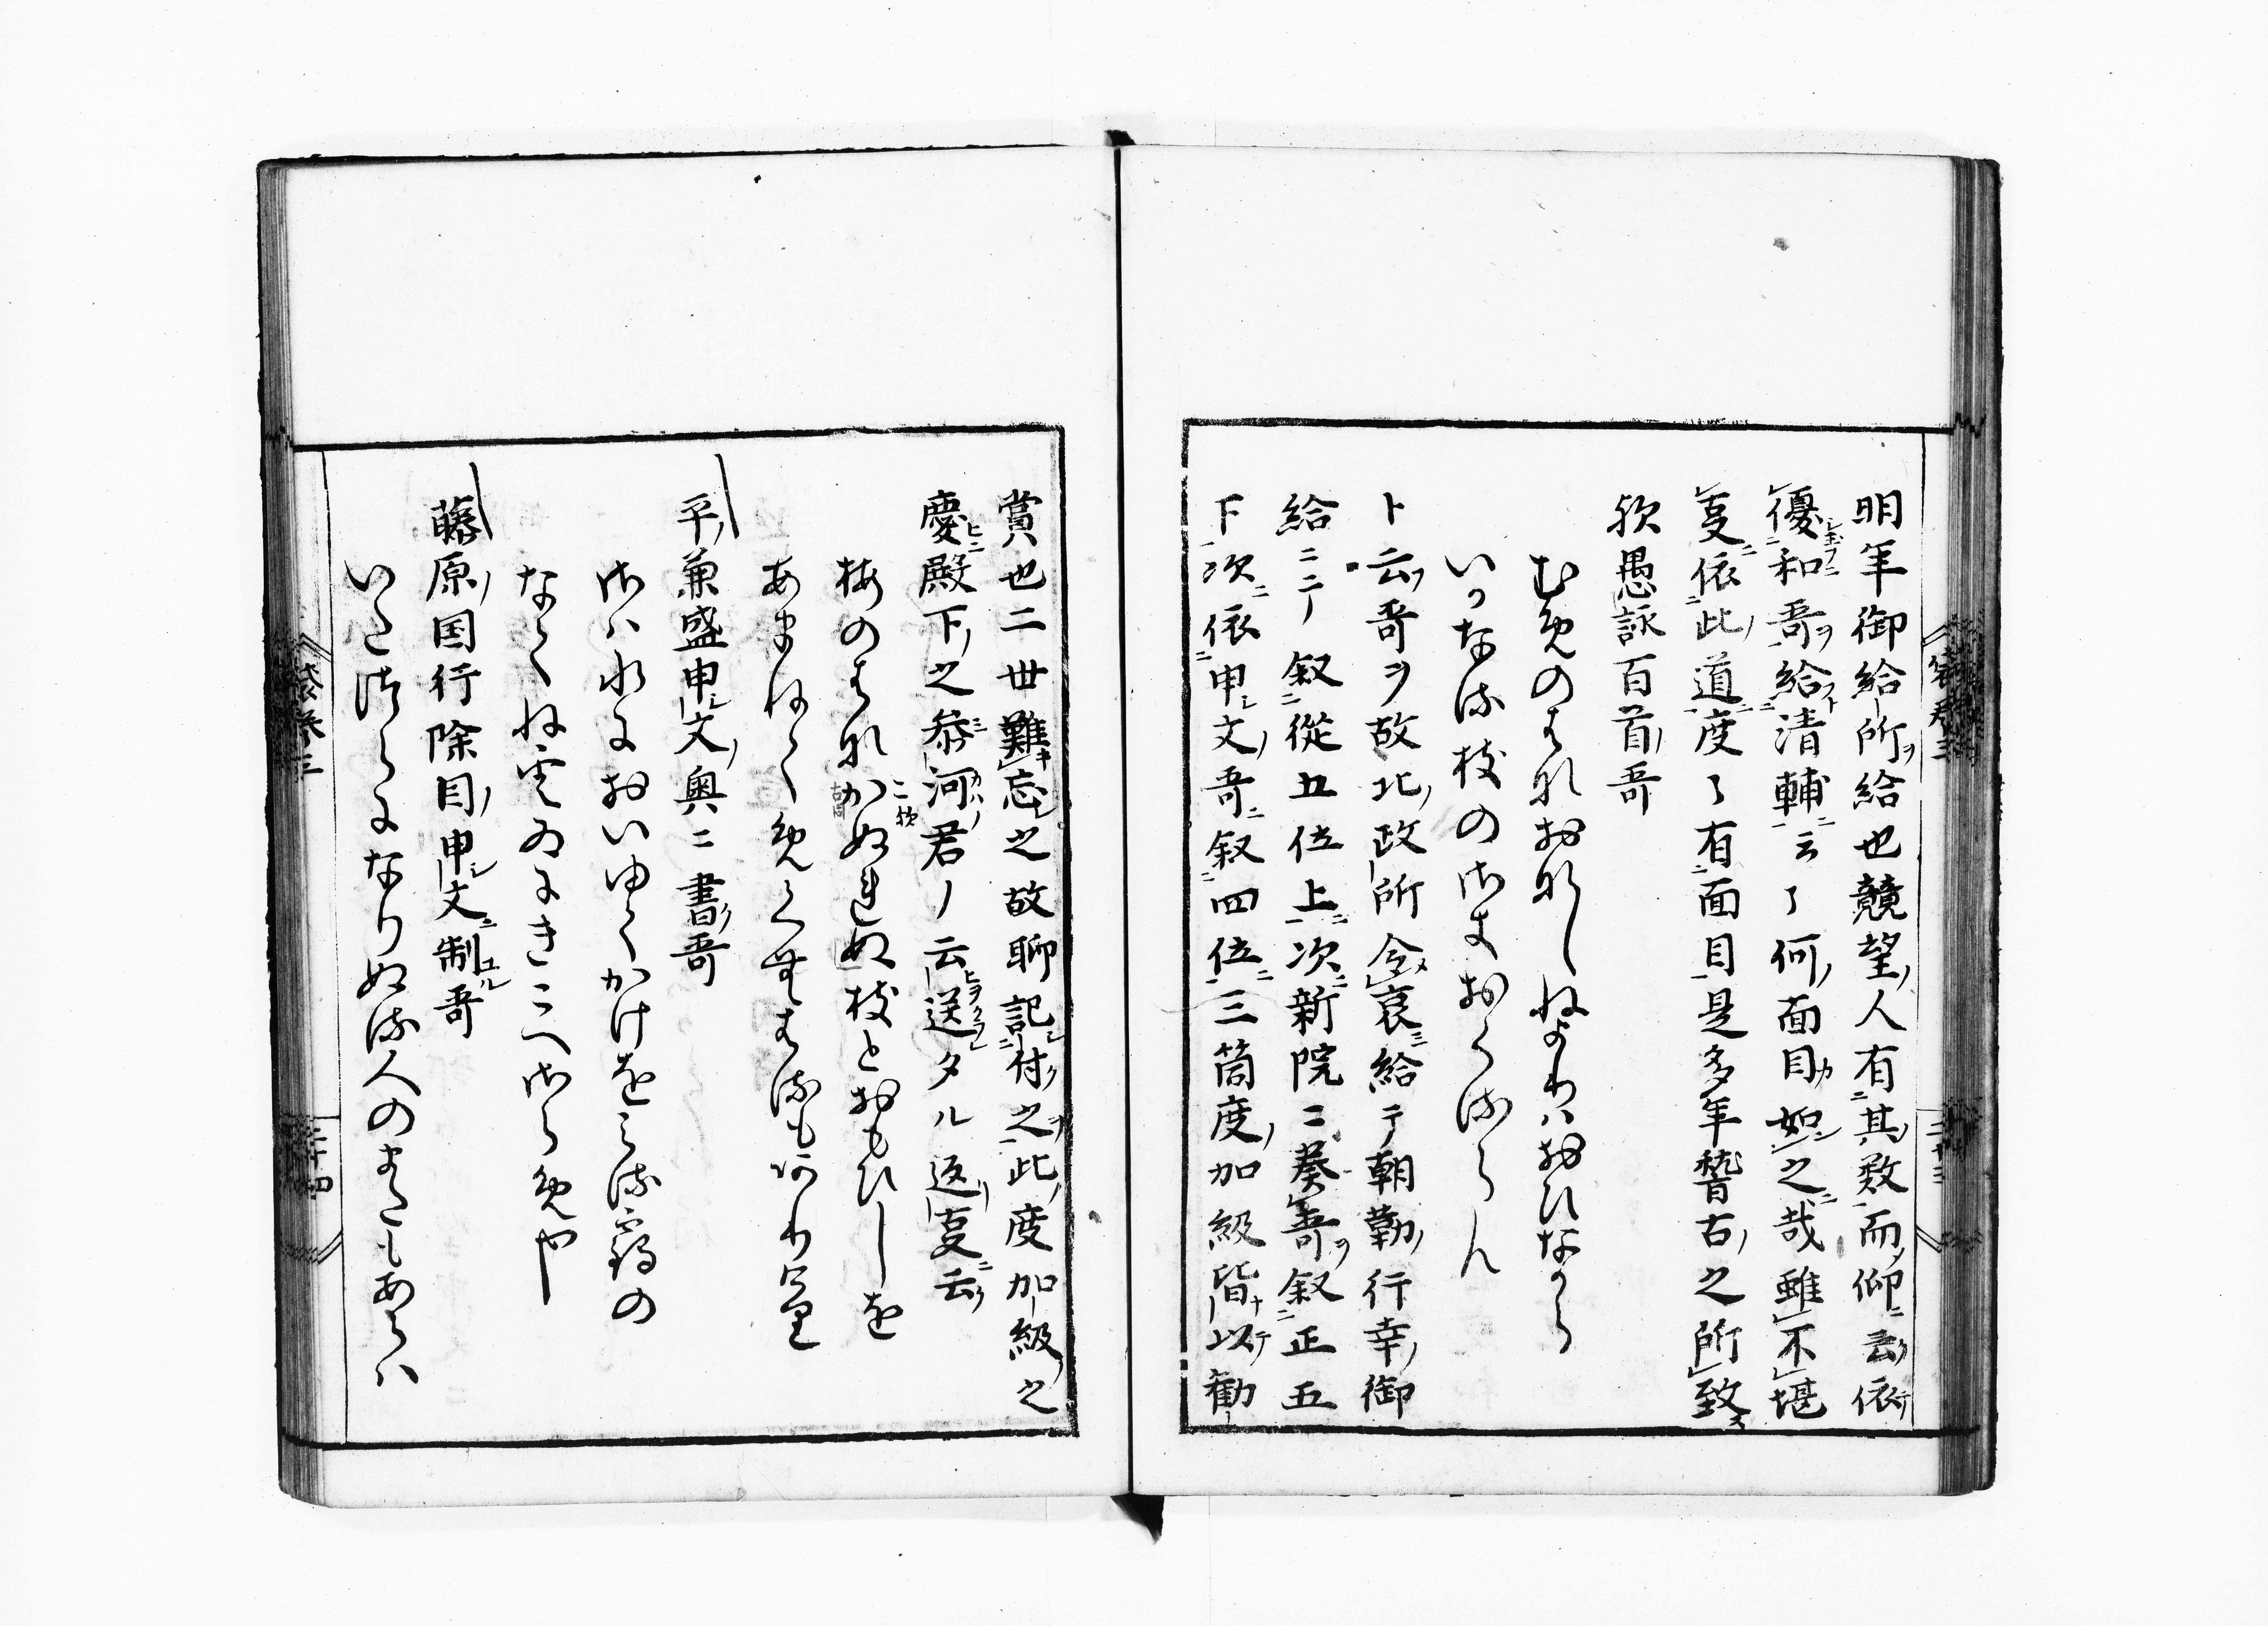 明年御給所給也競望人有其数而仰云依
優和哥給清輔云了何面目如之哉雖不堪
叓依此道度々有面目是多年䅲古之所致
欤愚詠百首哥
むめのはなおなしねよりはおひなから
いかなる枝のさきおくるらん
ト云哥ヲ故北政所令哀給テ朝勤行幸御
給ニテ叙従五位上次新院ニ葵哥叙正五
下次依申文哥叙四位三箇度加級皆以勧
賞也二世難忘之故聊記付之此度加級之
慶殿下之参河君ノ云送タル返叓云
梅のはなかぬれぬ枝とおもひしを
平兼盛申文奥ニ書哥
さは水においゆくかけをみる鶴の
なくね雲ゐにきこへさらめや
藤原国行除目申文制哥
いたつらになりぬる人のまたもあらは
袋巻三
三十四